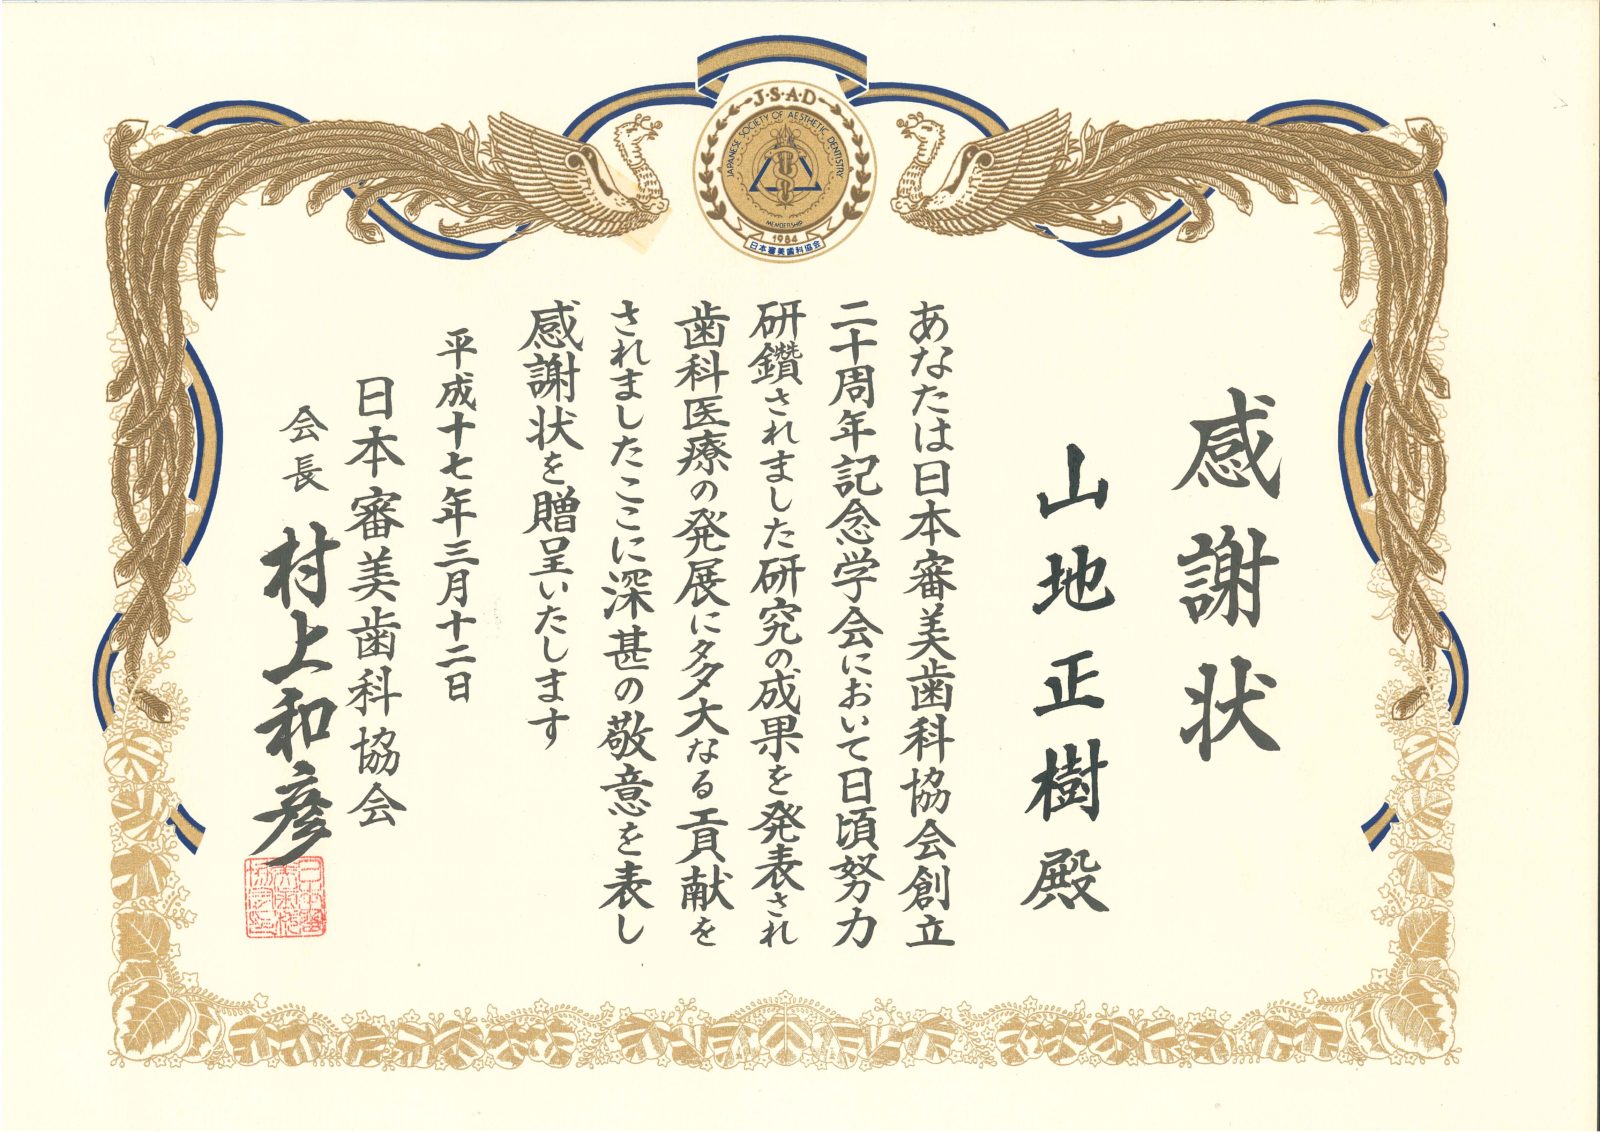 J·S·A·D
JAPANESE SOCIETY OF AESTHETIC DENTISTRY
MEMBERSHIP
1984
日本審美歯科協会
感謝状
山地正樹殿
あなたは日本審美歯科協会創立
二十周年記念学会において日頃努力
研鑽されました研究の成果を発表され
歯科医療の発展に多大なる貢献を
されましたここに深甚の敬意を表し
感謝状を贈呈いたします
平成十七年三月十二日
日本審美歯科協会
会長 村上和彦